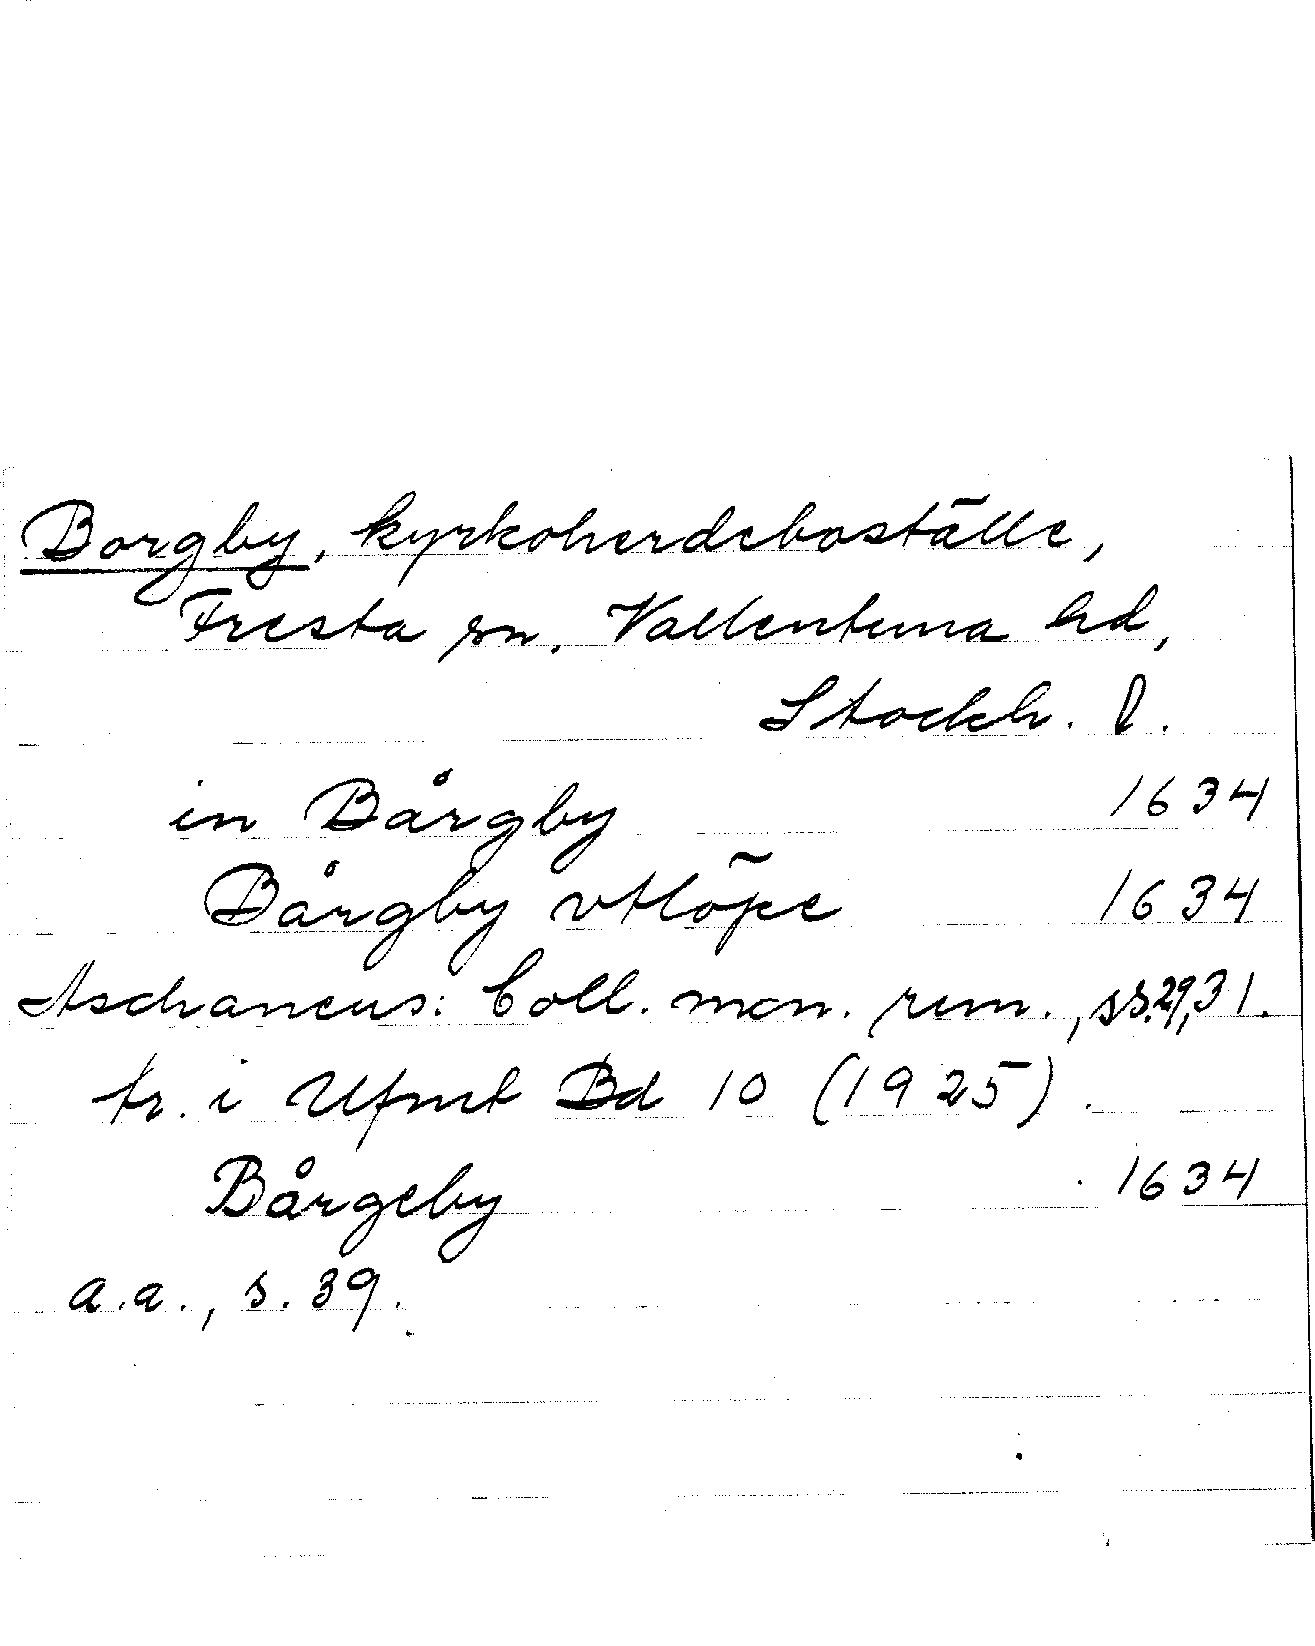 Borgby, kyrkoherdeboställe,
Fresta sn, Vallentuna hd,
Stockh. l.
in Bårgby 1634
Bårgby vtlöpe 1634
Aschaneus: Coll. mon. rem., ss. 29, 31.
tr. i Ufmt Bd 10 (1925).
Bårgeby 1634
a.a., s. 39.